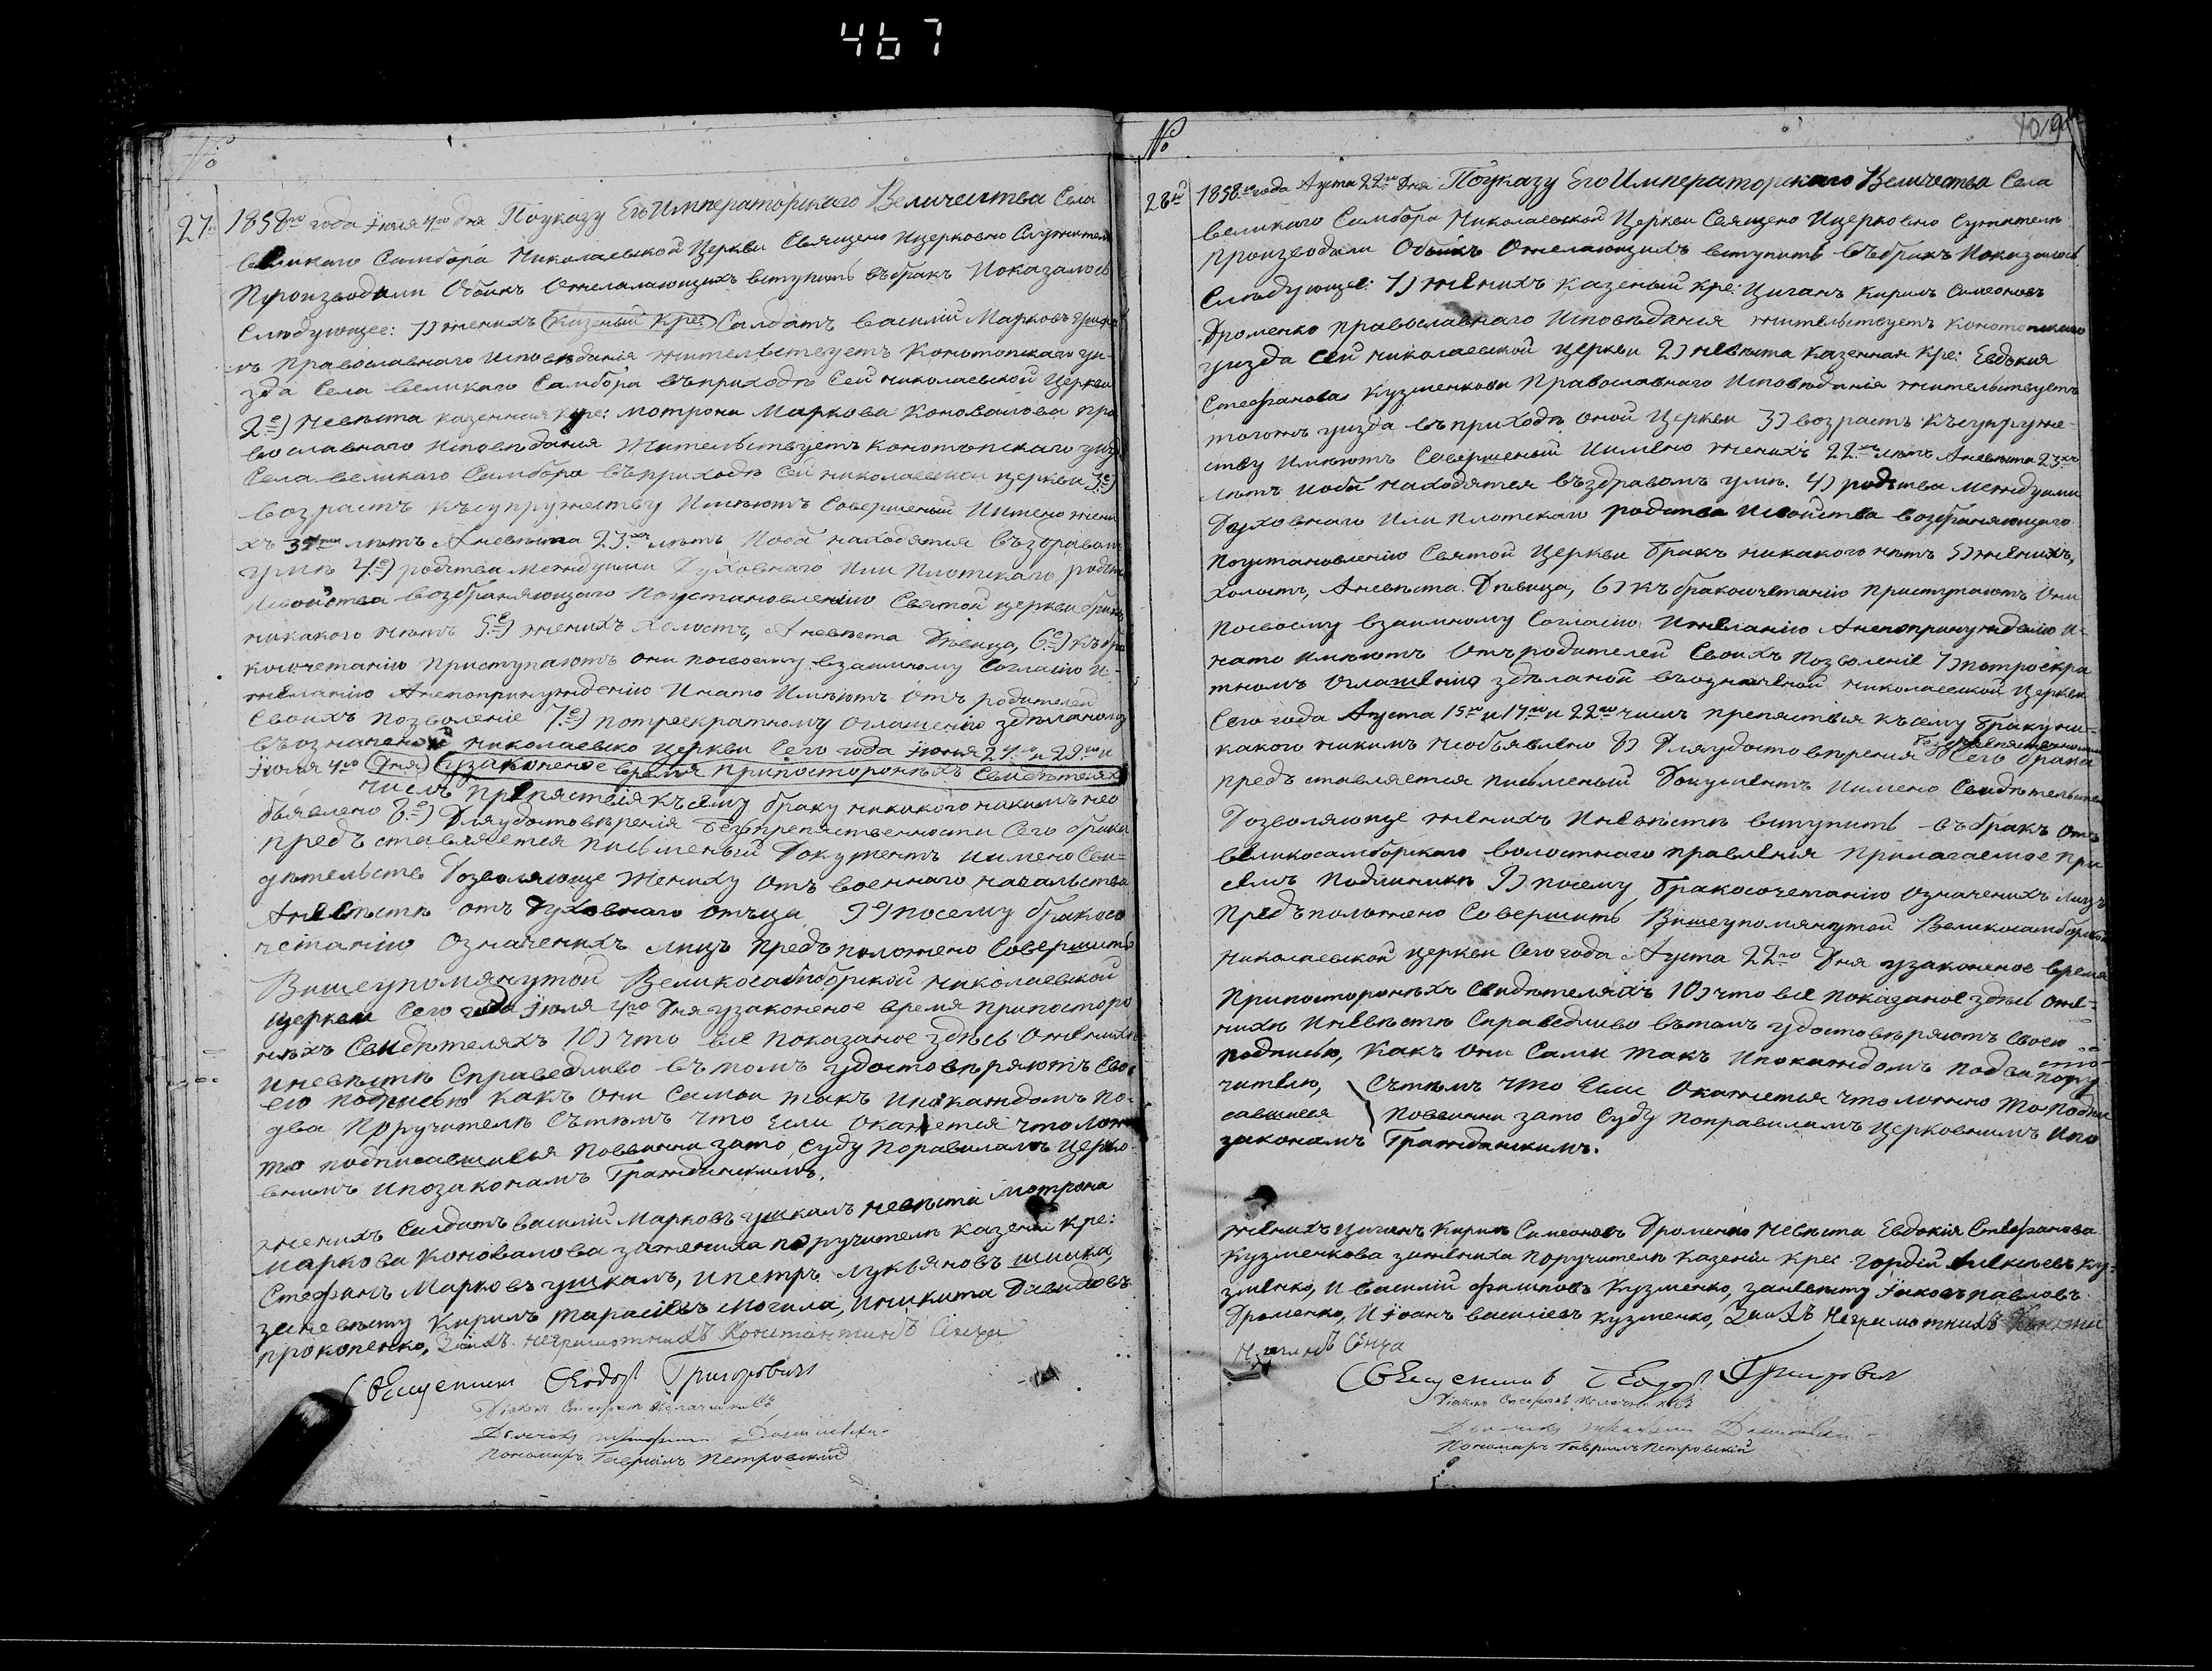 467
№
27
1858го года Июля 4го дня Поуказу Его Императорскаго Величества Села
великаго Самбора Николаевской Церкви Священо Ицерковно Служители
Производили Обыкъ Ожелалающихъ вступить въбракъ Показалось
Слѣдующее: 1) женихъ (казеный Кре:) Салдатъ василий Марковъ
православнаго исповѣданія жительствуетъ Конотопскаго уи-
зда Села великаго Самбора въприходѣ Сей николаевской Церкви
2е) Невѣста казенная кре: мотрона Маркова Коновалова пра
вославнаго исповѣданія Жительствуетъ конотопскаго уизда
Села великаго Самбора въприходѣ Сей николаевской церкви 3е)
возрастъ къ супружеству Имѣютъ Совершеный Имено жени
хъ лѣтъ Аневѣста 23хъ лѣтъ иоба находятся въздравомъ
умѣ 4е) родства междуими Духовнаго Или Плотскаго родства
Исвойства возбраняющаго Поустановленію Святой церкви бракъ
никакого нѣтъ 5е) женихъ холостъ, Аневѣста Дѣвица, 6е) къбра
косочетанію Приступаютъ они посвоему взаимному Согласію И-
желанію Анепопринужденію Инато Имѣютъ отъ родителей
Своихъ позволеніе 7е) потроекратному оглашенію зделаному
въозначеной николаевско церкви Сего года Июня 24го и 29го и
Июля 4го (Дня) (узаконеное время припостороннѣхъ Свидѣтеляхъ)
числъ препяствія къ сему браку никакого никимъ нео
бъявлено 8е) Для удостовѣренія безпрепяственности Сего брака
предъставляется письменый Документъ имено Сви-
дѣтельств Дозволяюще жениху отъ военнаго начальства
Аневѣстѣ отъ Духовнаго отъца 9е) посему бракосо
четанію Означенихъ лицъ предъположено Совершить
Вишеупомянутой Великосамборской николаевской
церкви Сего года Июля 4го Дня узаконеное время припосторо
ннѣхъ Свидѣтеляхъ 10) что все показаное здѣсь Оженихѣ
иневѣстѣ Справедливо въ томъ удостовѣряютъ Сво
ею подписью какъ они Самои такъ ипокаждомъ по-
два поручителѣ Сътѣмъ что Если Окажется что ложно
то подписавшиеся повинни зато Суду поравиламъ Церко
внимъ ипозаконамъ Гражданскимъ.
женихъ Салдатъ василий Марковъ ушкалъ невѣста мотрона
маркова Коновалова зажениха поручители казений кре:
Стефанъ Марковъ ушкалъ, ипетръ лукьяновъ шинка,
заневѣсту Кирилъ Тарасіевъ Могила, иникита Давидовъ
прокопенко, Заихъ неграмотнихъ Константинъ Сенча
Священикъ Феодоръ Григоровичъ
Діаконъ Стефанъ
Пономаръ Гавриилъ Петровский
№
1019
28й
1858го года Агуста 22го Дня Поуказу Его Императорскаго Величества Села
великаго Самбора Николаевской Церкви Священо Ицерковно Сужители
производили Обыкъ Ожелающихъ вступить въбракъ Показалось
Слѣдующее: 1) женихъ казеный кре: Циганъ Кирилъ Симеоновъ
Дроменко православнаго Исповѣданія жительствуетъ конотопскаго
уизда сей николаевской церкви 2) невѣста казенная кре: Евдокия
Стефанова Кузменкова Православнаго Исповѣданія жительствуетъ
тогожъ уизда въприходѣ оной Церкви 3) возрастъ Къ супруже-
ству Имѣютъ Совершеный Иимено женихъ 22хъ лѣтъ Аневѣста 23хъ
лѣтъ иоба находятся въздравомъ умѣ. 4) родства междуими
Духовнаго Или плотскаго родства исвойства возбраняющаго
Поустановленію Святой Церкви бракъ никакого нѣтъ 5) женихъ,
холостъ, Аневѣста Дѣвица, 6) къ бракосочетанію Приступаютъ Они
посвоему взаимному Согласію Ижеланію Анепопринужденію И-
нато имѣютъ Отъродителей Своихъ позволеніе 7) потроекра
тномъ оглашенію здѣланой въозначеной николаевской Церкви
Сего года Агуста 15го и 17го и 22го числъ препяствія къ сему браку ни-
какого никимъ необъявлено 8) Для удостовѣренія безпрепяственности Сего брака
предъставляется писменый Документъ имено Свидѣтельство
Дозволяюще женихъ Иневѣстѣ вступить въбракъ отъ
великосамборскаго волостнаго правленія прилагаемое при
семъ подлиникѣ 9) посему бракосочетанію означенихъ лицъ
предъположено Совершить Вишеупомянутой Великосамборской
николаевской церкви Сего года Агуста 22го Дня узаконеное время
припостороннѣхъ Свидѣтеляхъ 10) что все показаное здѣсь оже-
нихѣ Иневѣстѣ Справедливо вътомъ удостовѣряютъ Своею
подписью, Какъ Они Сами такъ Ипокаждомъ подва пору
чителю, Сътѣмъ что Если Окажется что ложно то подпи
савшиеся повинни зато Суду поправиламъ Церковнимъ ипо
законамъ Гражданскимъ.
женихъ Циганъ Кирилъ Симеоновъ Дроменко Невѣста Евдокія Стефанова
Кузменкова зажениха поручители казений кре: гордѣй Алексѣевъ ку-
зменко, и василий филиповъ Кузменко, заневѣсту Іаковъ павловъ
Дроменко, И іоанъ василіевъ кузменко, Заихъ неграмотнихъ
Сенча
Священикъ Феодоръ Григоровичъ
Діаконъ Стефанъ
Пономаръ Гавриилъ Петровский